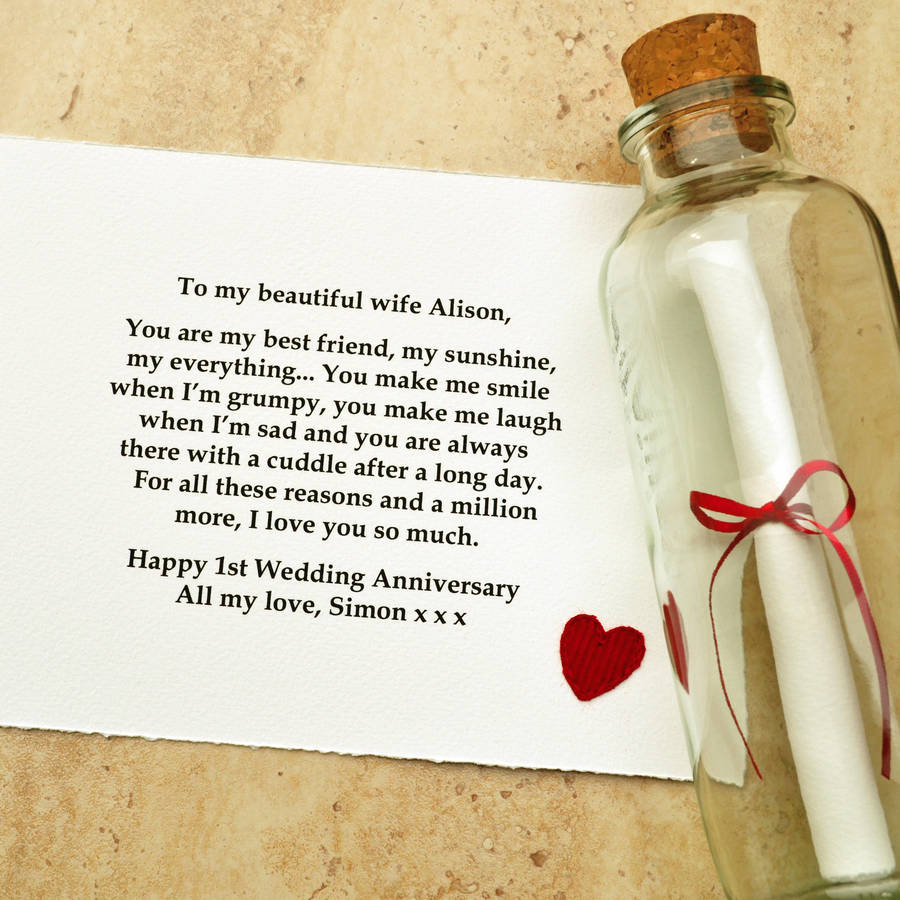 To my beautiful wife Alison,
You are my best friend, my sunshine,
my everything... You make me smile
when I’m grumpy, you make me laugh
when I’m sad and you are always
there with a cuddle after a long day.
For all these reasons and a million
more, I love you so much.
Happy 1st Wedding Anniversary
All my love, Simon x x x